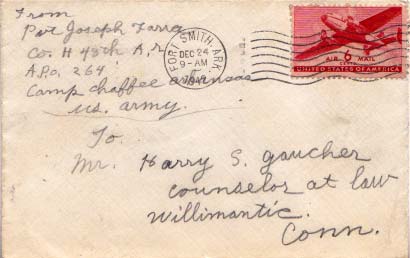 From
Pvt Joseph
Co. H 48th A.
A.P.O. 264
Camp chaffee arkansas
us. army.
FORT SMITH, ARK
DEC 24
9-AM
AIR 6 MAIL
CENTS
UNITED STATES OF AMERICA
To.
Mr. Harry S. gaucher
counselor at law
Willimantic.
Conn.